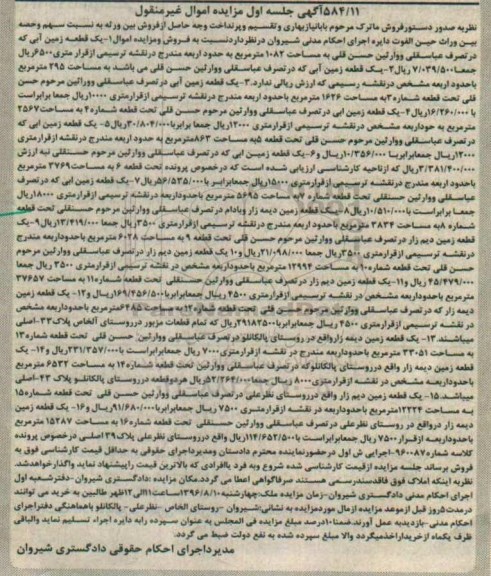 ۵۸۴/۱۱آگهی جلسه اول مزایده اموال غیرمنقول
نظریه صدور دستورفروش ماترک مرحوم بابانیازبهاری وتقسیم وپرداخت وجه حاصل ازفروش بین ورثه به نسبت سهم وحصه
بین وراث حین الفوت دایره اجرای احکام مدنی شیروان درنظرداردنسبت به فروش ومزایده اموال۱-یک قطعه زمین آبی که
در تصرف عباسقلی ووارثین حسن قلی به مساحت ۱۰۸۳ مترمربع به حدود اربعه مندرج درنقشه ترسیمی ازقرار متری ۶۵۰۰ریال
جمعا۷/۰۳۹/۵۰۰ ریال۲-یک قطعه زمین آبی که درتصرف عباسقلی ووارثین حسن قلی می باشد به مساحت ۲۹۵ مترمربع
باحدود اربعه مشخص درنقشه رسیمی که ارزش ریالی ندارد.۳-یک قطعه زمین آبی درتصرف عباسقلی ووراثین مرحوم حسن
قلی تحت قطعه شماره۳به مساحت ۱۶۲۶ مترمربع باحدود اربعه مندرج درنقشه ترسیمی ازقرارمتری ۱۰۰۰۰ریال جمعابرابر
با ۱۶/۲۶۰/۰۰۰ریال۴-یک قطعه زمین ابی درتصرف عباسقلی ووارثین مرحوم حسن قلی تحت قطعه شماره۴به مساحت۲۵۶۷
مترمربع به حوداربعه مشخص درنقشه ترسیمی ازقرارمتری ۱۲۰۰۰ریال جمعا برابربا۳۰/۸۰۴/۰۰۰ریال۵-یک قطعه زمین ابی که
درتصرف عباسقلی ووارثین مرحوم حسن قلی تحت قطعه ۵به مساحت ۸۶۳مترمربع به حدود اربعه مندرج درنقشه ازقرارمتری
۱۲۰۰۰ریال جمعابرابربا ۱۰/۳۵۶/۰۰۰ریال و۶-یک قطعه زمین ابی که درتصرف عباسقلی ووارثین مرحوم حسنقلی به ارزش
۳/۳۸۱/۴۰۰/۰۰۰ریال که ازناحیه کارشناسی ارزیابی شده است که درخصوص پرونده تحت قطعه ۶ به مساحت۳۷۶۹ مترمربع
باحدود اربعه مندرج درنقشه ترسیمی ازقرارمتری ۱۵۰۰۰ریال جمعابرابربا ۵۶/۵۳۵/۰۰۰ریال۷-یک قطعه زمین ابی که درتصرف
عباسقلی ووارثین حسنقلی تحت قطعه شماره ۷به مساحت ۵۶۹۵ مترمربع باحدوداربعه درنقشه ترسیمی ازقرارمتری ۱۸۰۰۰ریال
جمعا برابراست با۱۰/۵۱۰/۰۰۰ریال۸-یک قطعه زمین دیمه زار وبادام در تصرف عباسقلی ووارثین مرحوم حسنقلی تحت قطعه
شماره ۸به مساحت ۳۸۳۴ مترمربع باحدوداربعه درنقشه ترسیمی ازقرارمتری ۳۵۰۰ریال جمعا ۱۳/۴۱۹/۰۰۰ریال۹-یک
قطعه زمین دیم زار در تصرف عباسقلی ووارثین مرحوم حسن قلی تحت قطعه ۹ به مساحت ۶۰۲۸ مترمربع باحدوداربعه مندرج
درنقشه ترسیمی ازقرارمتری ۳۵۰۰ریال جمعا ۲۱/۰۹۸/۰۰۰ریال و۱۰ یک قطعه دیم زار درتصرف عباسقلی ووارثین مرحوم
حسن قلی تحت قطعه شماره۱۰به مساحت ۱۲۹۹۴ مترمربع باحدوداربعه مشخص در نقشه ترسیمی ازقرارمتری ۳۵۰۰ ریال جمعا
۴۵/۴۷۹/۰۰۰ ریال و۱۱-یک قطعه زمین دیم زار در تصرف عباسقلی ووارثین حسنقلی تحت قطعه شماره۱۱به مساحت ۳۷۶۵۷
مترمربع باحدوداربعه مشخص در نقشه ترسیمی ازقرارمتری ۴۵۰۰ ریال جمعابرابربا۱۶۹/۴۵۶/۵۰۰ریال و۱۲- یک قطعه زمین
دیمه زار که در تصرف عباسقلی ووارثین مرحوم حسن قلی تحت قطعه شماره۱۲به مساحت ۶۴۸۵مترمربع باحدوداربعه مشخص
در نقشه ترسیمی ازقرارمتری ۴۵۰۰ ریال جمعابرابربا۲۹۱۸۲۵۰۰ریال که تمام قطعات مزبور درروستای آلخاص پلاک۳۳-اصلی
میباشند.۱۳-یک قطعه زمین دیمه زارواقع در روستای پالکانلودرتصرف عباسقلی ووارثین حسن قلی تحت قطعه شماره۱۳
به مساحت ۳۳۰۵۱ مترمربع باحدوداربعه مندرج در نقشه ازقرارمتری۷۰۰۰ ریال جمعابرابراست با۲۳۱/۳۵۷/۰۰۰ریال و۱۴-یک
قطعه زمین دیمه زار واقع درروستای پالکانلوکه درتصرف عباسقلی ووارثین حسن قلی تحت قطعه شماره۱۴ به مساحت ۶۵۳۲ مترمربع
باحدوداربعه مشخص در نقشه ازقرارمتری۸۰۰۰ ریال جمعا۵۲/۲۶۴/۰۰۰ریال هردوقطعه درروستای پالکانلو پلاک ۴۳-اصلی
میباشد.۱۵-یک قطعه زمین دیم زار واقع درروستای نظرعلی در تصرف عباسقلی ووارثین حسن قلی تحت قطعه شماره۱۵
به مساحت۱۲۲۲۴ مترمربع باحدوداربعه در نقشه ازقرارمتری ۷۵۰۰ ریال جمعابرابربا ۹۱/۶۸۰/۰۰۰ریال و۱۶- یک قطعه زمین
دیمه زار درواقع در روستای نظرعلی در تصرف عباسقلی ووارثین حسنقلی تحت قطعه شماره۱۶ به مساحت ۱۵۲۸۷ مترمربع
باحدوداربعه ازقرار ۷۵۰۰ ریال جمعابرابراست با۱۱۴/۶۵۲/۵۰۰ریال واقع درروستای نظرعلی پلاک۳۹اصلی درخصوص پرونده
کلاسه شماره۹۶۰۰۸۷-اجرایی ش اول درحضورنماینده محترم دادستان ومدیراجرای حقوقی به حداقل قیمت کارشناسی فوق به
فروش برساند جلسه مزایده ازقیمت کارشناسی شده شروع وبه فرد یاافرادی که بالاترین قیمت راپیشنهاد نماید واگذارخواهدشد.
نظربه اینکه املاک فوق فاقدسندرسمی هستند صرفاگواهی اعطا می گردد.مکان مزایده :دادگستری شیروان-دفترشعبه اول
اجرای احکام مدنی دادگستری شیروان-زمان مزایده ملک:چهارشنبه۱۳۹۶/۸/۱۰ساعت۱۱الی۱۲ظهر طالبین به خرید می توانند
درمدت۵روز قبل ازموعد مزایده ازمال موردمزایده به نشانی:شیروان -روستای الخاص -نظرعلی- پالکانلو باهماهنگی دفتراجرای
احکام مدنی-بازدیدبه عمل آورند.ضمنا۱۰درصد مبلغ مزایده فی المجلس به عنوان سپرده رابه دایره اجراء تسلیم نماید والباقی
ظرف یکماه ازخریداراخذمیگردد والا مبلغ سپرده شده به نفع دولت ضبط می گردد.
مدیرداجرای احکام حقوقی دادگستری شیروان